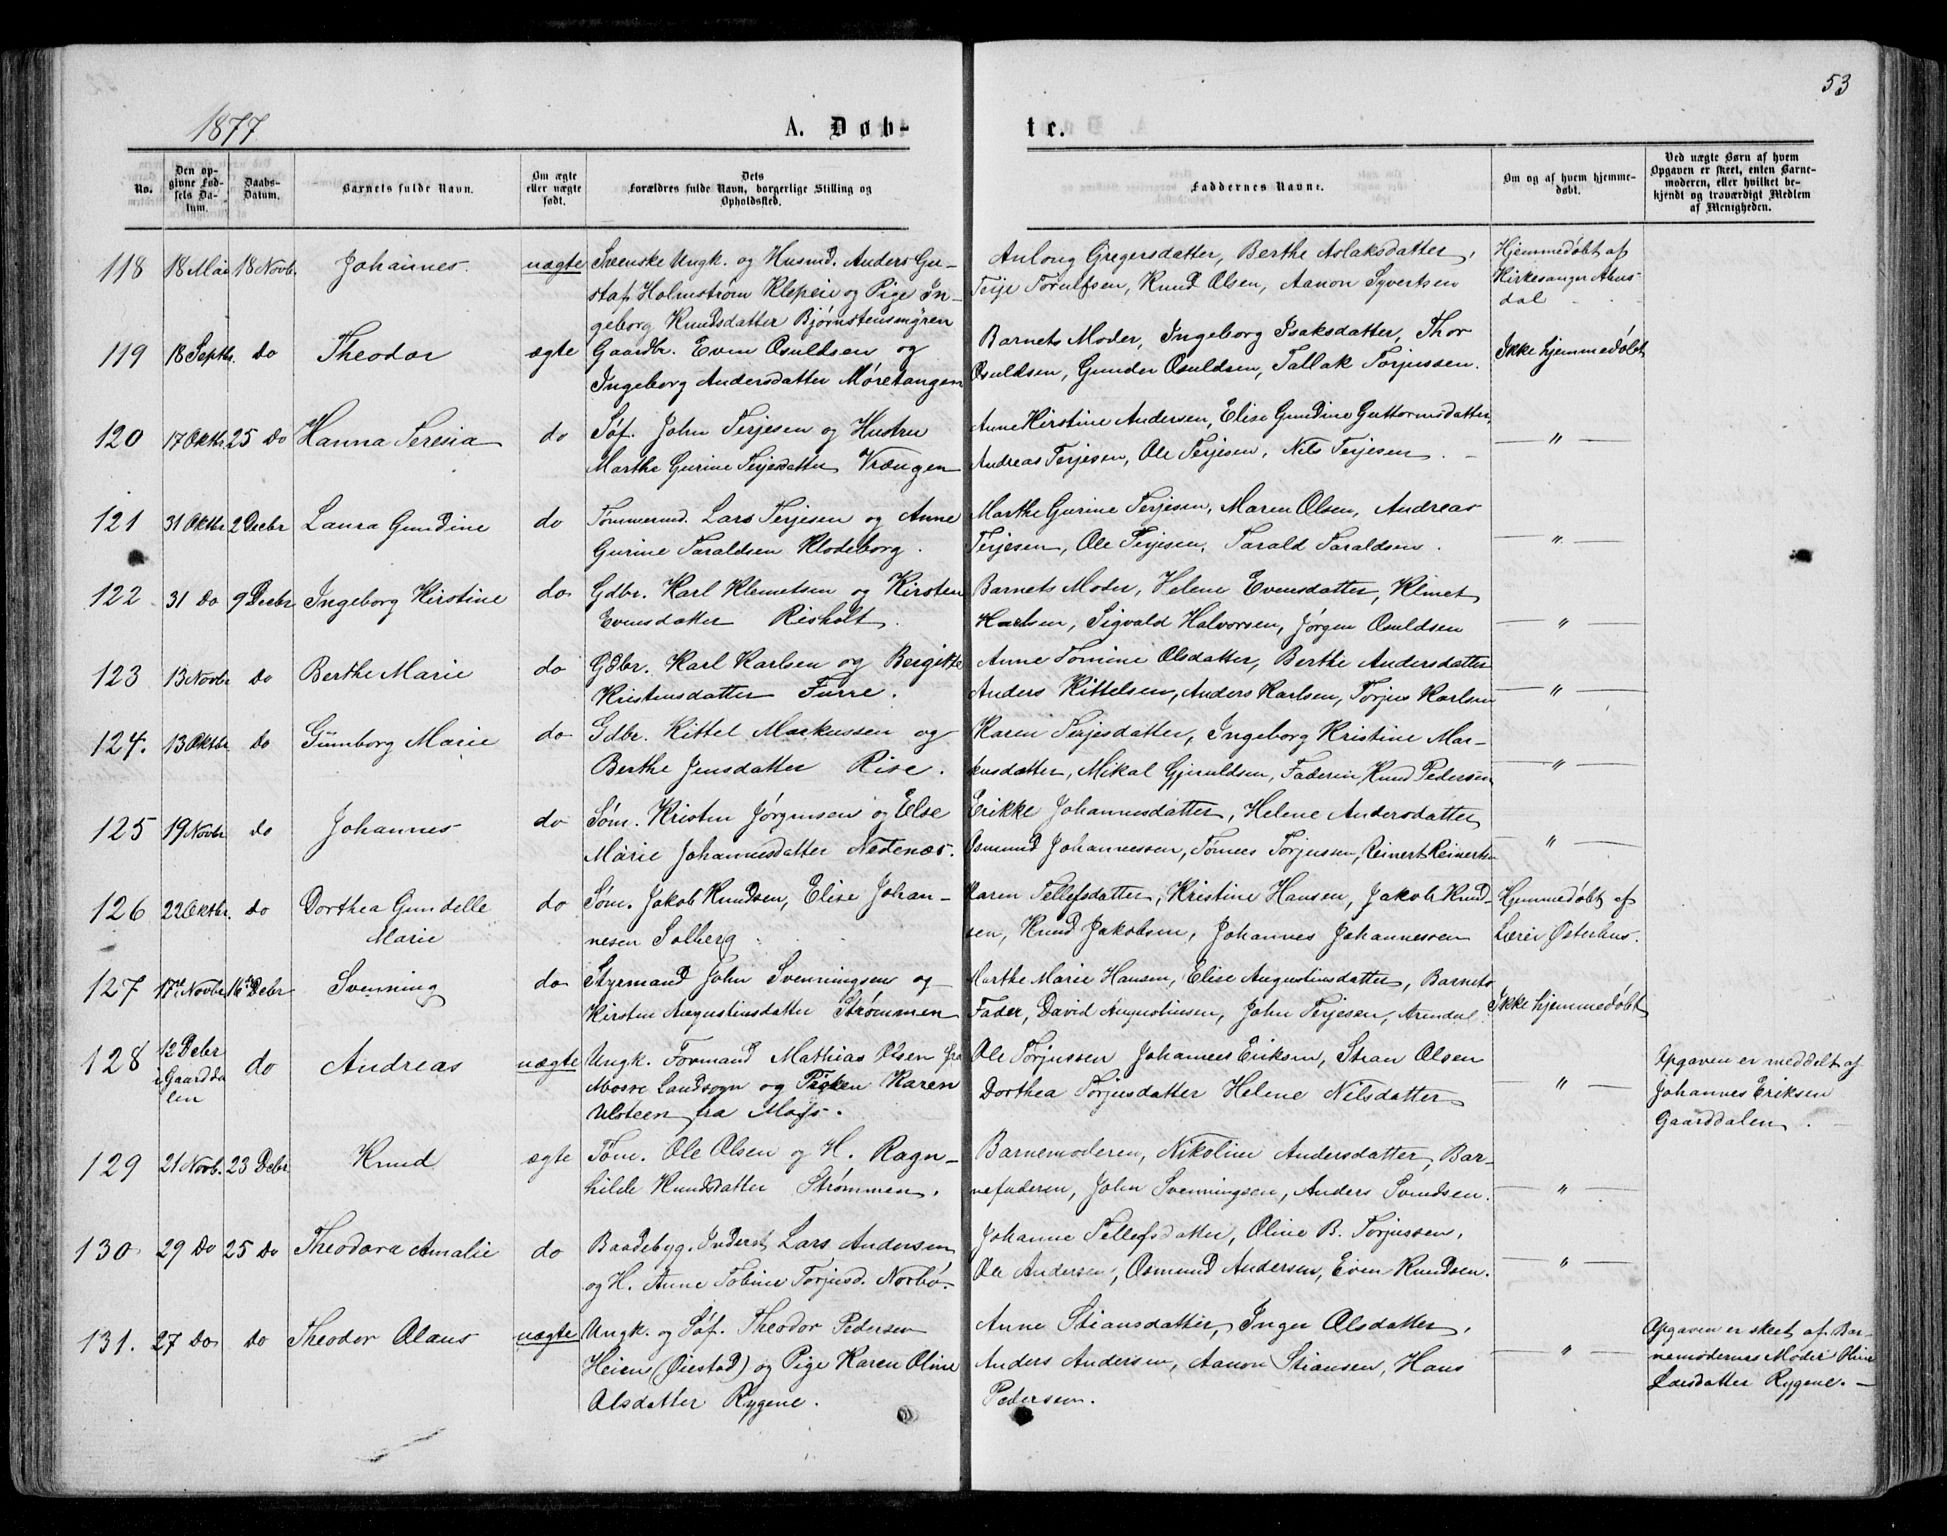 53
1877.
A. Døb-
te.
No.
Den op-
givne Fød-
sels Da-
tum.
Daabs-
Datum.
Barnets fulde Navn.
Om ægte
eller uægte
født.
Dets
Forældres fulde Navn, borgerlige Stilling og
Opholdssted.
Faddernes Navne.
Om og af hvem hjemme-
døbt.
Ved uægte Børn af hvem
Opgaven er skeet, enten Barne-
moderen, eller hvilket be-
kjendt og troværdigt Medlem
af Menigheden.
118 18 Mai 18 Novb. Johannes. uægte Svenske Ungk. og Husmd. Anders Gu-
staf Holmstrøm Klepeie og Pige In-
geborg Knudsdatter Bjørnstensmyren
Anlong Gregersdatter, Berthe Aslaksdatter,
Teije Torulfsen, Knud Olsen, Aanon Syvertsen
Hjemmedøbt af
Kirkesanger
dal
119 18 Septbr. do Theodor ægte Gaardbr. Even Osuldsen og
Ingeborg Andersdatter Møretangen
Barnets Moder, Ingeborg Isaksdatter, Thor
Osuldsen, Gunder Osuldsen, Tallak Torjussen.
Ikke hjemmedøbt
120 17 Oktbr. 25 do Hanna Teresia do Søf. John Terjesen og Hustru
Marthe Gurine Terjesdatter Vrængen
Anne Kirstine Andersen, Elise Gundine Guttormsdatter,
Andreas Terjesen, Ole Terjesen, Nils Terjesen.
— " —
121 31 Oktbr 2 Decbr Laura Gundine do Tømmermd. Lars Terjesen og Anne
Gurine Taraldsen Klodeborg.
Marthe Gurine Terjesen, Maren Olsen, Andreas
Terjesen, Ole Terjesen, Tarald Taraldsen.
— " —
122 31 do 9 Decbr Ingeborg Kirstine do Gdbr. Karl Klemetsen og Kirsten
Evensdatter Risholt.
Barnets Moder, Helene Evensdatter, Klemet
Karlsen, Sigvald Halvorsen, Jørgen Osuldsen
— " —
123 13 Novbr do Berthe Marie do Gdbr. Karl Karlsen og Bergitte
Kristensdatter Furre.
Anne Tomine Olsdatter, Berthe Andersdatter
Anders Kittelsen, Anders Karlsen, Torjus Karlsen
— " —
124. 13 Oktbr do Gunborg Marie do Gdbr. Kittel Markussen og
Berthe Jensdatter Rise.
Karen Terjesdatter, Ingeborg Kristine Mar-
kusdatter, Mikal Gjeruldsen, Faderen Knud Pedersen
— " —
125 19 Novbr do Johannes do Søm. Kristen Jørgensen og Else
Marie Johannesdatter Nedenæs.
Erikke Johannesdatter, Helene Andersdatter
Osmund Johannessen, Tønnes Torjussen, Reinert Reinertsen
— " —
126 22 Oktbr. do Dorthea Gundelle
Marie do Søm. Jakob Knudsen, Elise Johan-
nesen Solberg
Karen Tellefsdatter, Kristine Hansen, Jakob Knud-
sen, Knud Jakobsen, Johannes Johannessen
Hjemmedøbt af
Lærer Østerhus.
127 17de Novbr 16de Debr Svenning do Styrmand John Svenningsen og
Kirsten Augustinsdatter Strømmen
Marthe Marie Hansen, Elise Augustinsdatter, Barnets
Fader, David Augustinsen, John Terjesen, Arendal.
Ikke hjemmedøbt
128 12 Debr
i Gaardda
len do Andreas uægte Ungk. Formand Mathias Olsen fra
Mosse Landsogn og Pigen Karen
Ulsteen fra Moss.
Ole Torjussen Johannes Eriksen, Stian Olsen
Dorthea Torjusdatter Helene Nilsdatter
— " —
Opgaven er meddelt af
Johannes Eriksen
Gaarddalen.
129 21 Novb. 23 Debr Knud ægte Tøm. Ole Olsen og H. Ragn-
hilde Knudsdatter Strømmen.
Barnemoderen, Nikoline Andersdatter, Bar-
nefaderen, John Svenningsen, Anders Svendsen.
— " —
130 29 do 25 do Theodora Amalie do Baadebyg. Inderst Lars Andersen
og H. Anne Tobine Torjusd. Norbø.
Johanne Tellefsdatter, Oline B. Torjussen,
Ole Andersen, Osmund Andersen, Even Knudsen.
— " —
131. 27 do do Theodor Olaus uægte Ungk. og Søf. Theodor Pedersen
Heien (Øiestad) og Pige Karen Oline
Olsdatter Rygene.
Anne Stiansdatter, Inger Olsdatter,
Anders Andersen, Aanon Stiansen, Hans
Pedersen.
— " —
Opgaven er skeet af Bar-
nemoderens Moder Oline
Larsdatter Rygene. —